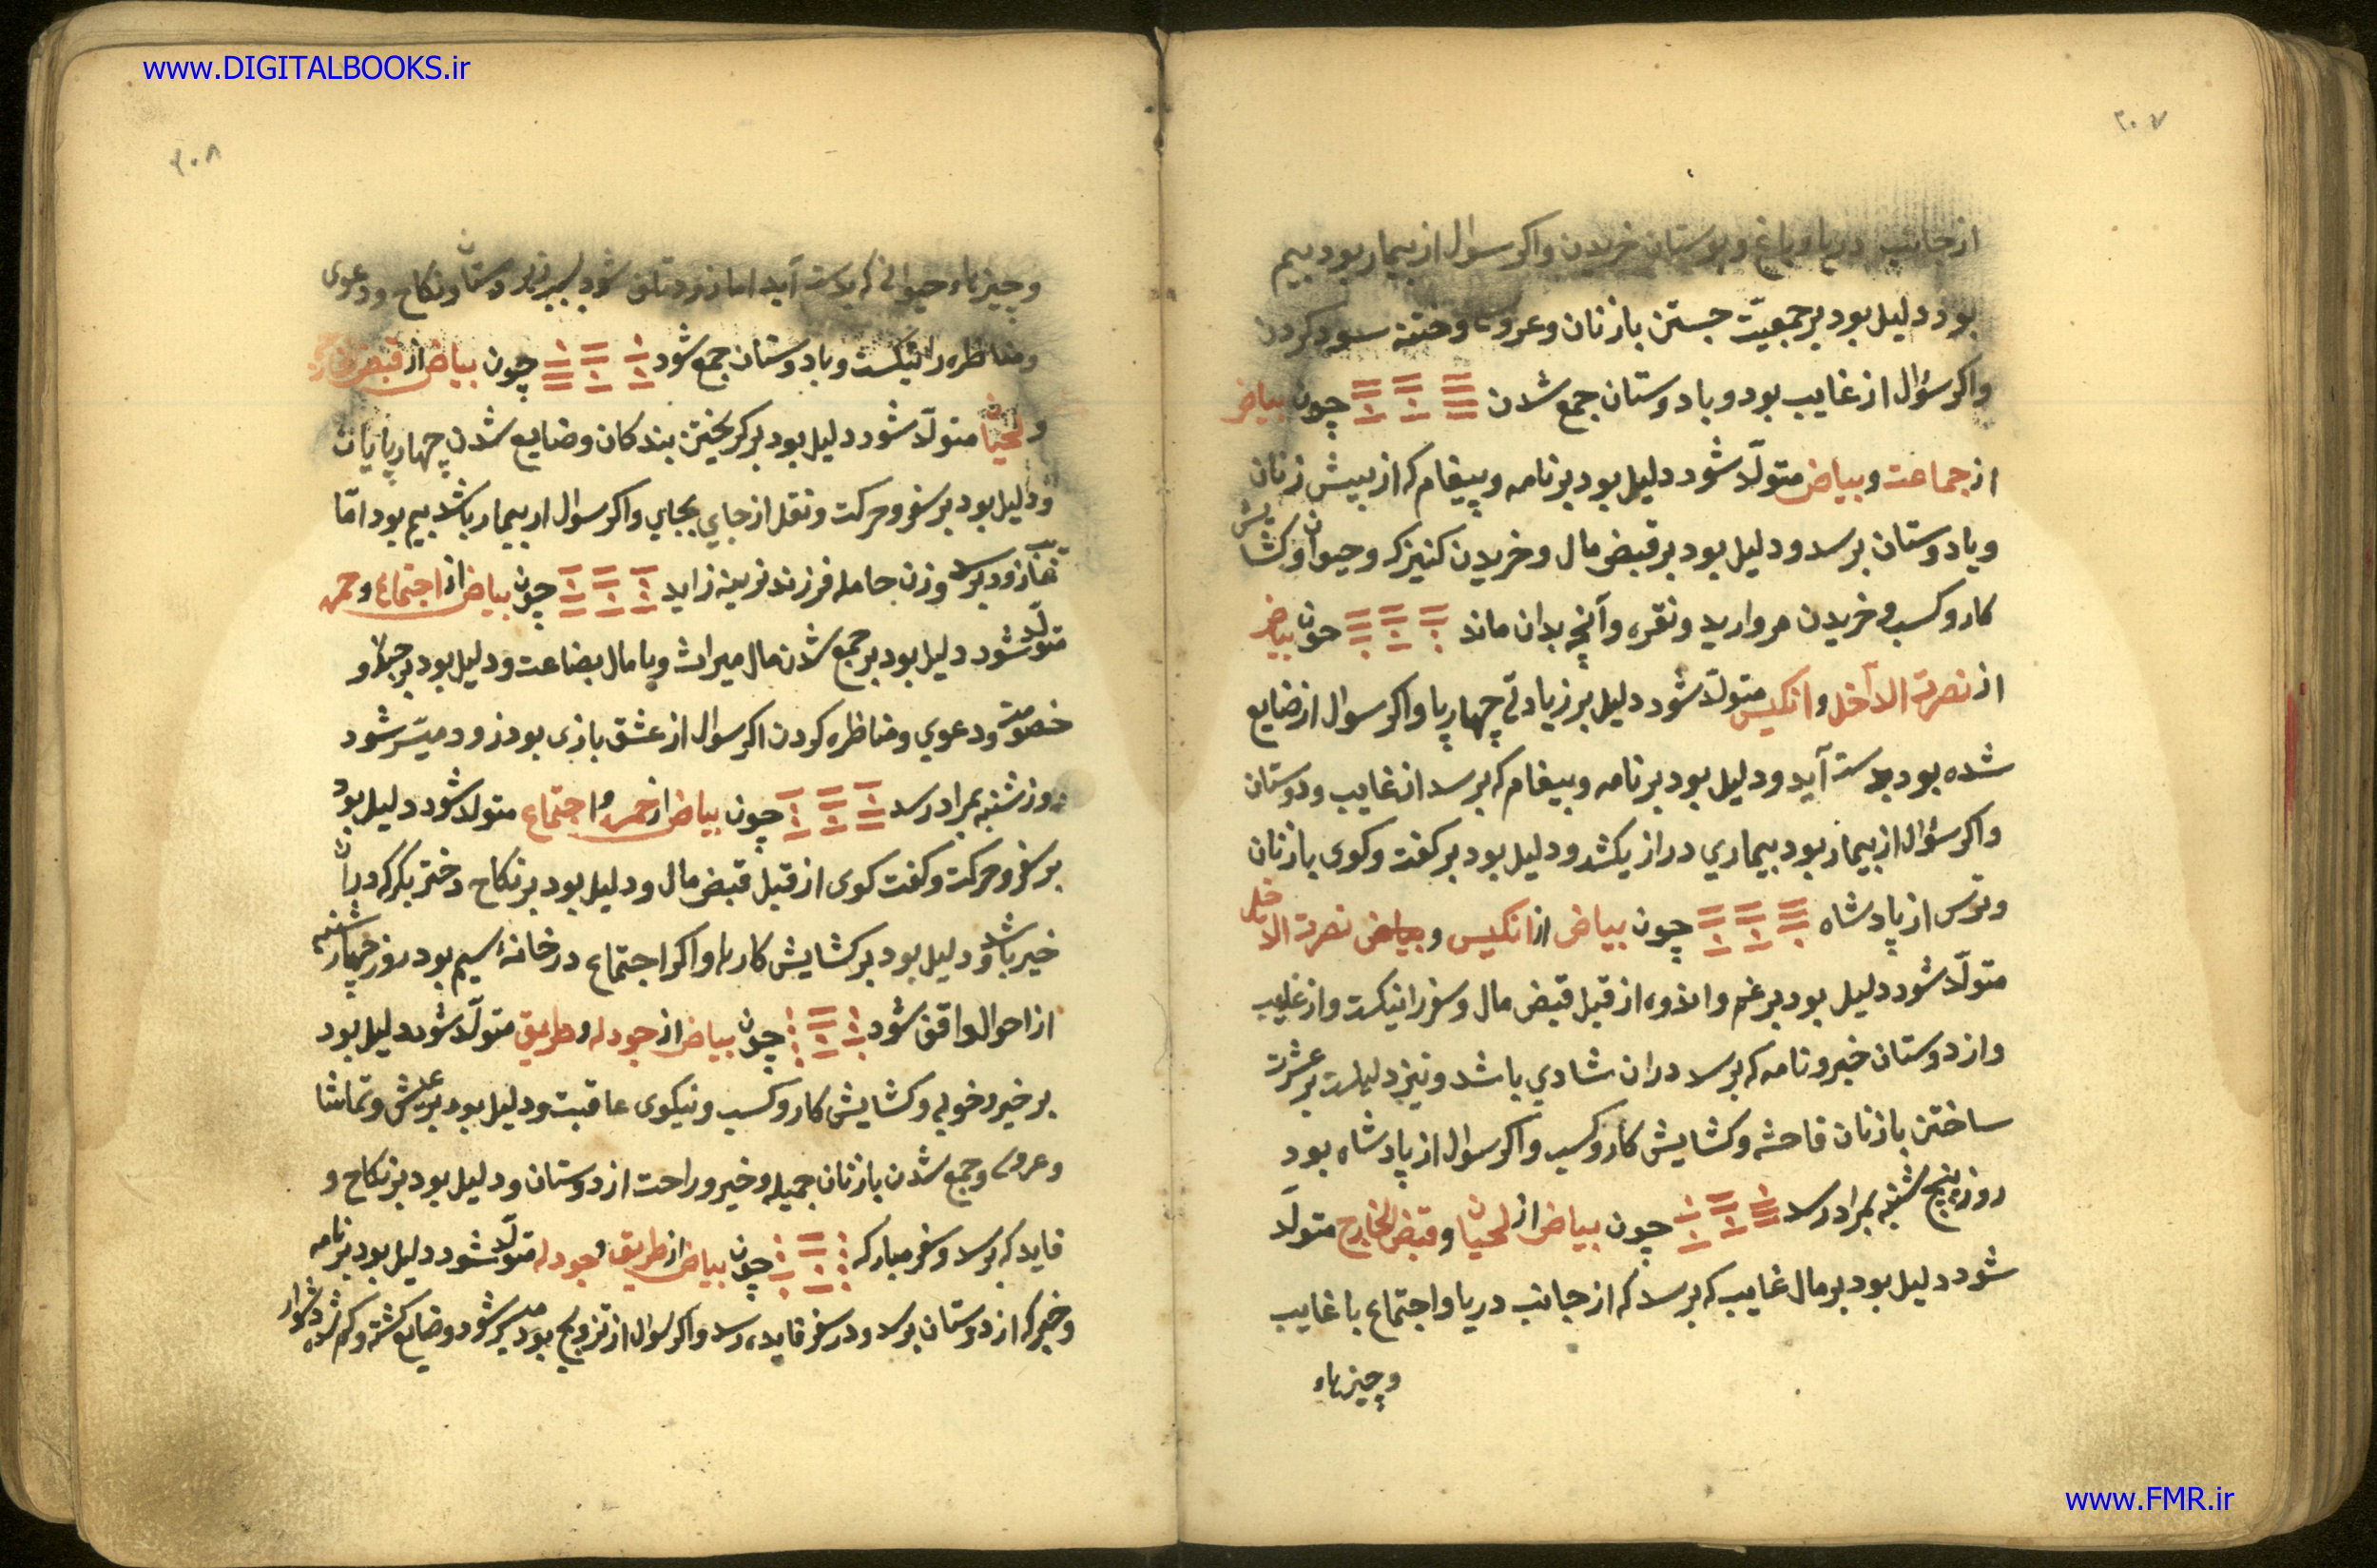 www.DIGITALBOOKS.ir
۲۰۷
از جانب دریا و باغ و بوستان خریدن واکر سوال از بیمار بود بیم
بود دلیل بود بر جمعیّت جستن با زنان و عروسی وختنه سور کردن
واکر سؤال از غایب بود و با دوستان جمع شدن چون بیاض
از جماعت و بیاض متولّد شود دلیل بود بر نامه و پیغام که از پیش زنان
و یا دوستان برسد و دلیل بود بر قبض مال و خریدن کنیزک و حیوان وکشایش
کار و کسب و خریدن مروارید و نقره وآنچه بدان ماند چون بیاض
از نصرة الداخل و انکیس متولّد شود دلیل بر زیادتی چهارپا واکر سوال از ضایع
شده بود بدست آید و دلیل بود بر نامه و پیغام که برسد از غایب و دوستان
واکر سؤال از بیمار بود بیماری دراز بکشد و دلیل بود بر کفت وکوی با زنان
وترس از پادشاه چون بیاض از انکیس و بیاض نصرة الداخل
متولّد شود دلیل بود بر غم و اندوه از قبل قبض مال و سفر را نیکست واز غایب
واز دوستان خبر و نامه که برسد دران شادی باشد و نیز دلیلست بر عشرت
ساختن با زنان فاحشه وکشایش کار و کسب واکر سوال از پادشاه بود
روز پنج شنبه بمراد رسد چون بیاض از لحیان و قبض الخارج متولّد
شود دلیل بود بر مال غایب که برسد که از جانب دریا و اجتماع با غایب
و چیزهاء
۲۰۸
و چیزهاء حیوانی که بدست آید اما زود تلف شود بسبب دوستان و نکاح و دعوی
و مناظره را نیکست و با دوستان جمع شود چون بیاض از قبض خارج
و لحیان متولّد شود دلیل بود بر کریختن بندکان و ضایع شدن چهارپایان
و دلیل بود بر سفر و حرکت و نقل از جای بجای واکر سوال از بیمار باشد بیم بود امّا
زود برسد و زن حامله فرزند نرینه زاید چون بیاض از اجتماع و حمره
متولّد شود دلیل بود بر جمع شدن مال میراث و یا مال بضاعت و دلیل بود بر جدل و
خصومت و دعوی و مناظره کردن اکر سوال از عشق بازی بود زود میسّر شود
روز شنبه بمراد رسد چون بیاض از حمره و اجتماع متولد شود دلیل بود
بر سفر و حرکت و کفت کوی از قبل قبض مال و دلیل بود بر نکاح دختر بکر که دران
خیر باشد و دلیل بود بر کشایش کارها و اکر اجتماع در خانهٔ سیم بود روز چهارشنبه
از احوال واقف شود چون بیاض از جودله و طریق متولّد شود دلیل بود
بر خیر و خوبی و کشایش کار و کسب و نیکوی عاقبت و دلیل بود بر عیش و تماشا
و عروسی و جمع شدن با زنان جمیله و خیر و راحت از دوستان و دلیل بود بر نکاح و
فایده که برسد و سفر مبارک چون بیاض از طریق و جودله متولّد شود دلیل بود بر نامه
و خبر که از دوستان برسد و در سفر فایده رسد و اکر سوال از تزویج بود میسر شود و ضایع کشته و کم شده دشوار
www.FMR.ir